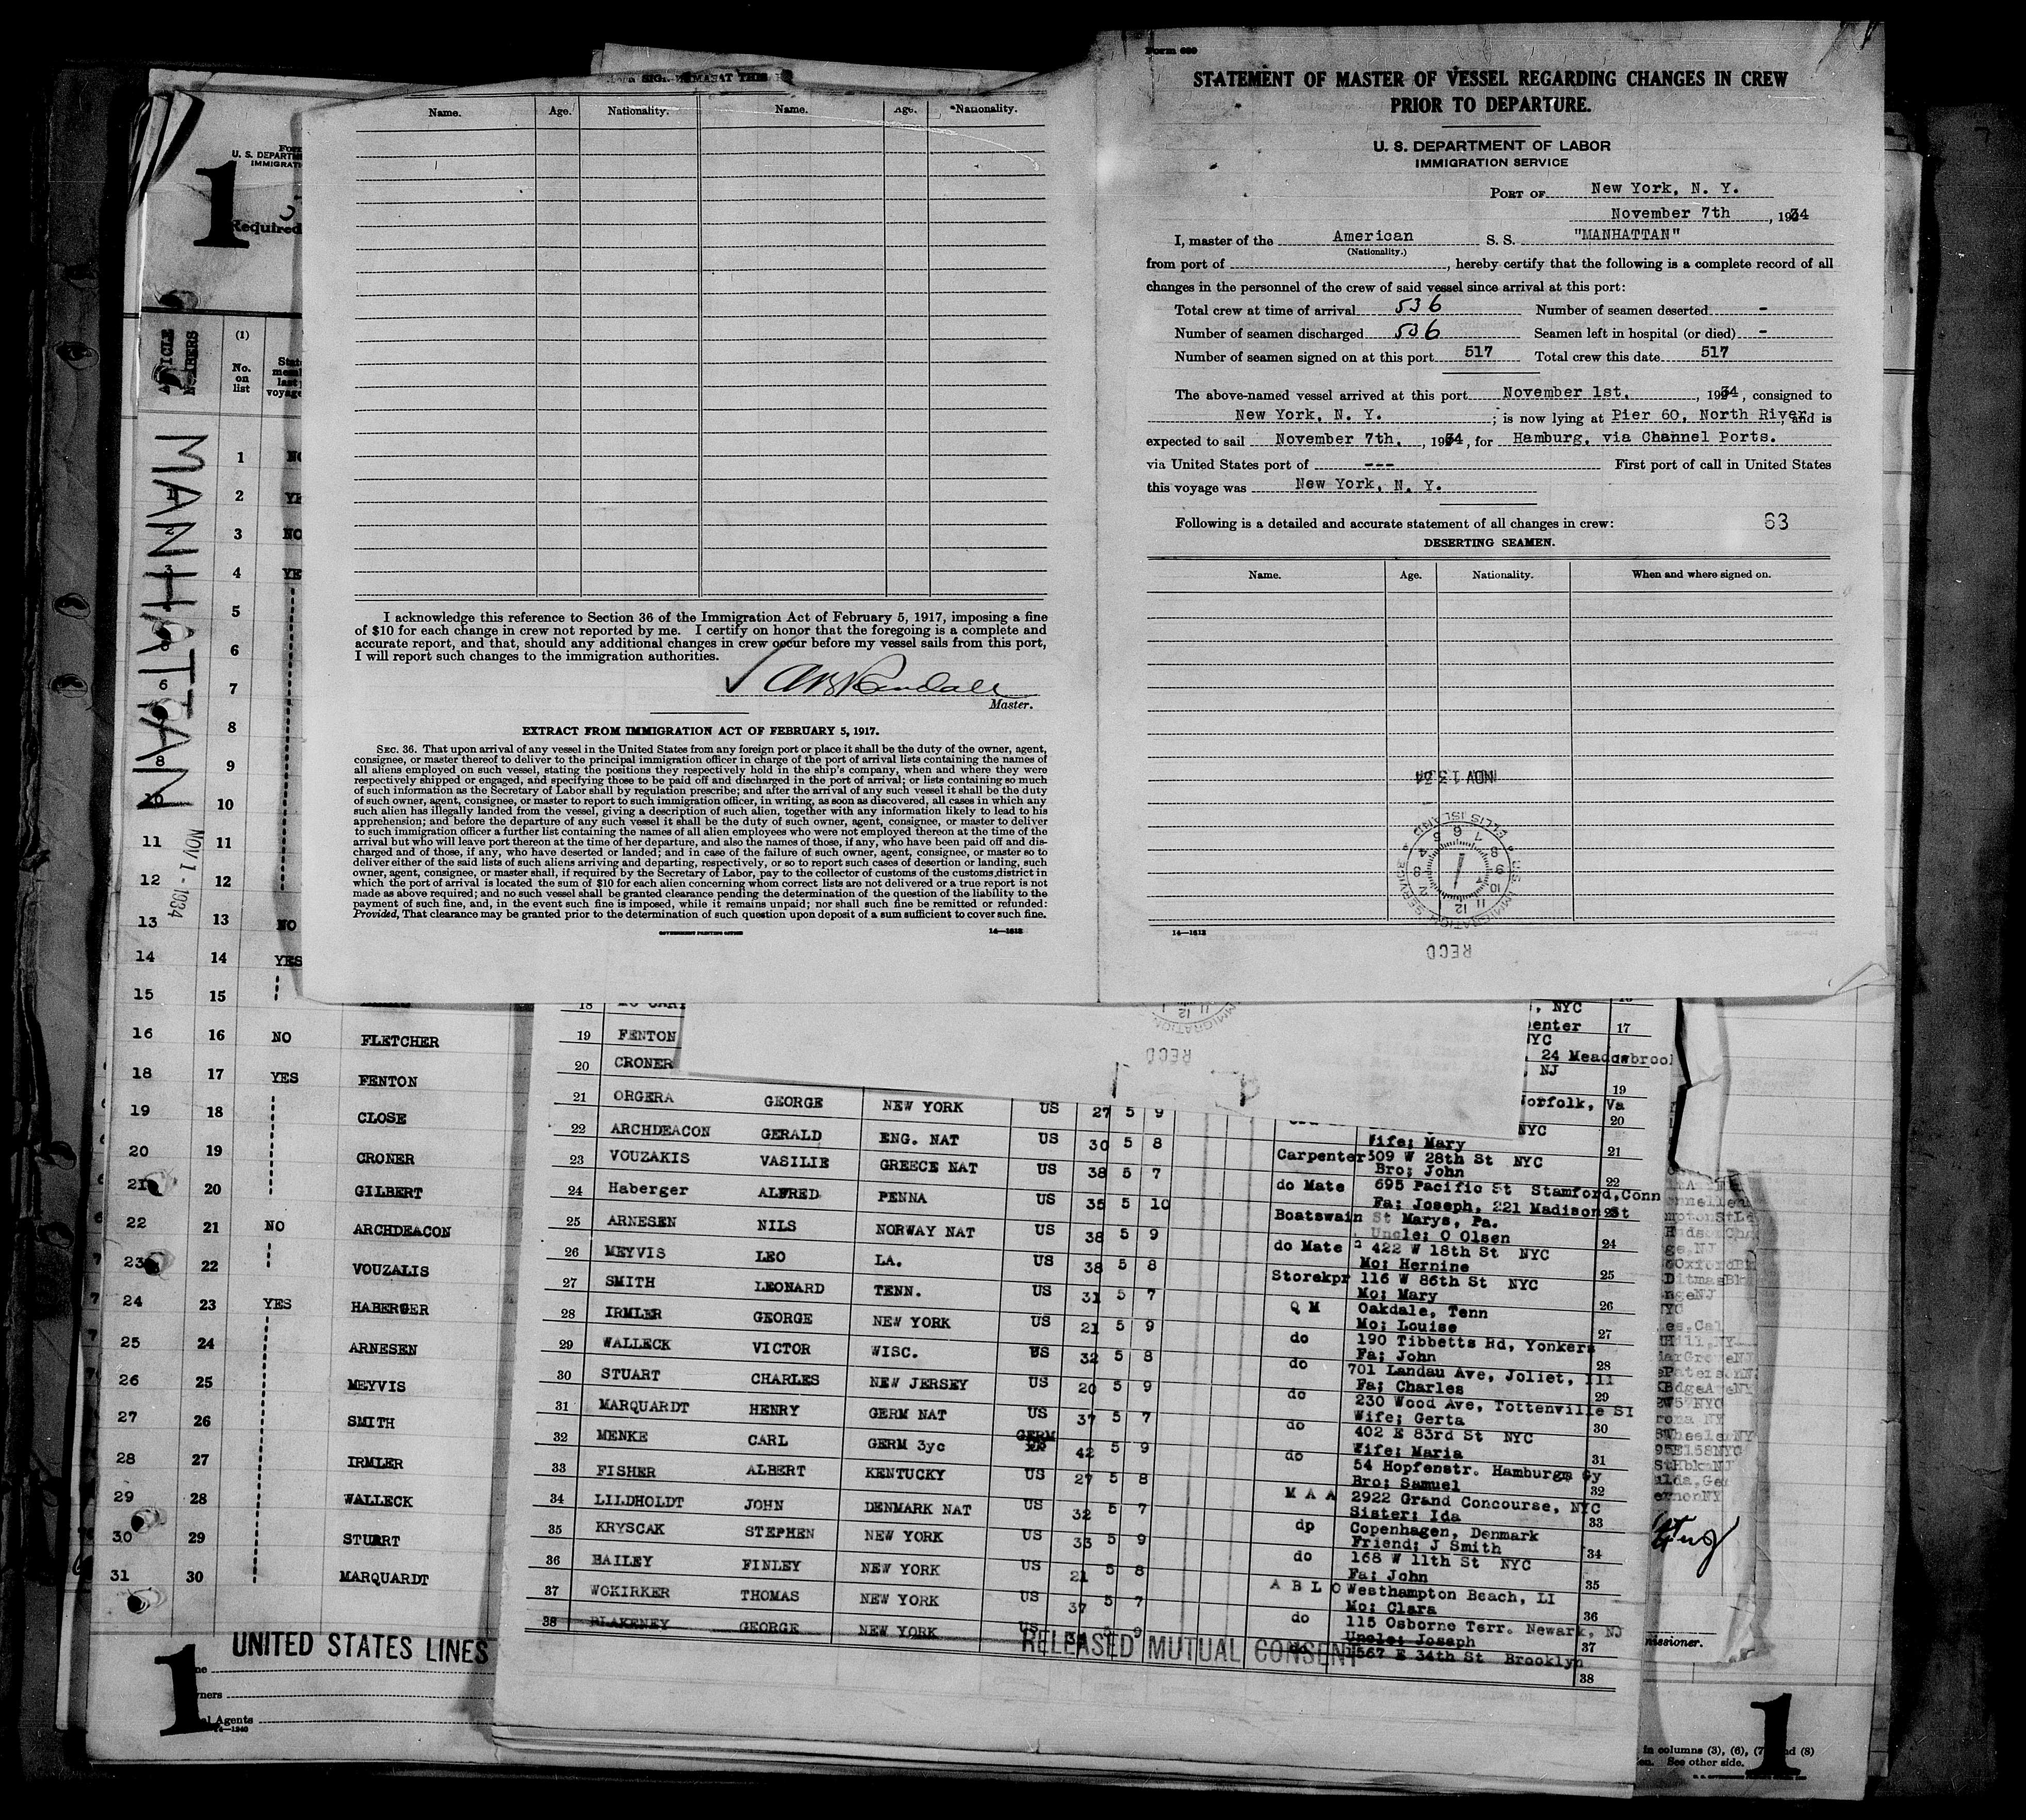 Name. Age. Nationality. Name. Age. Nationality.
I acknowledge this reference to Section 36 of the Immigration Act of February 5, 1917, imposing a fine
of $10 for each change in crew not reported by me. I certify on honor that the foregoing is a complete and
accurate report, and that, should any additional changes in crew occur before my vessel sails from this port,
I will report such changes to the immigration authorities.
Master.
EXTRACT FROM IMMIGRATION ACT OF FEBRUARY 5, 1917.
SEC. 36. That upon arrival of any vessel in the United States from any foreign port or place it shall be the duty of the owner, agent,
consignee, or master thereof to deliver to the principal immigration officer in charge of the port of arrival lists containing the names of
all aliens employed on such vessel, stating the positions they respectively hold in the ship's company, when and where they were
respectively shipped or engaged, and specifying those to be paid off and discharged in the port of arrival; or lists containing so much
of such information as the Secretary of Labor shall by regulation prescribe; and after the arrival of any such vessel it shall be the duty
of such owner, agent, consignee, or master to report to such immigration officer, in writing, as soon as discovered, all cases in which any
such alien has illegally landed from the vessel, giving a description of such alien, together with any information likely to lead to his
apprehension; and before the departure of any such vessel it shall be the duty of such owner, agent, consignee, or master to deliver
to such immigration officer a further list containing the names of all alien employees who were not employed thereon at the time of the
arrival but who will leave port thereon at the time of her departure, and also the names of those, if any, who have been paid off and dis-
charged and of those, if any, who have deserted or landed; and in case of the failure of such owner, agent, consignee, or master so to
deliver either of the said lists of such aliens arriving and departing, respectively, or so to report such cases of desertion or landing, such
owner, agent, consignee, or master shall, if required by the Secretary of Labor, pay to the collector of customs of the customs district in
which the port of arrival is located the sum of $10 for each alien concerning whom correct lists are not delivered or a true report is not
made as above required; and no such vessel shall be granted clearance pending the determination of the question of the liability to the
payment of such fine, and, in the event such fine is imposed, while it remains unpaid; nor shall such fine be remitted or refunded:
Provided, That clearance may be granted prior to the determination of such question upon deposit of a sum sufficient to cover such fine.
GOVERNMENT PRINTING OFFICE 14—1612
Form 689
STATEMENT OF MASTER OF VESSEL REGARDING CHANGES IN CREW
PRIOR TO DEPARTURE.
U. S. DEPARTMENT OF LABOR
IMMIGRATION SERVICE
PORT OF New York, N. Y.
November 7th, 1934
I, master of the American S. S. "MANHATTAN"
(Nationality.)
from port of , hereby certify that the following is a complete record of all
changes in the personnel of the crew of said vessel since arrival at this port:
Total crew at time of arrival 536 Number of seamen deserted -
Number of seamen discharged 536 Seamen left in hospital (or died) -
Number of seamen signed on at this port 517 Total crew this date 517
The above-named vessel arrived at this port November 1st, 1934, consigned to
New York, N. Y. ; is now lying at Pier 60, North River, and is
expected to sail November 7th, 1934, for Hamburg, via Channel Ports.
via United States port of --- First port of call in United States
this voyage was New York, N. Y.
Following is a detailed and accurate statement of all changes in crew: 63
DESERTING SEAMEN.
Name. Age. Nationality. When and where signed on.
NOV 13 34
U S IMMIGRATION SERVICE ELLIS ISLAND
RECD
14—1612
1
U. S. DEPARTM
IMMIGRATI
Required
ARTICLE NUMBERS
(1)
No. on list
MANHATTAN
NOV 1 - 1934
1 NO
1 2 YE
2 3 NO
3 4 YE
5
6
6 7
8
8 9
10 10
11 11
12 12
13 13 NO
14 14 YES
15 15
16 16 NO FLETCHER
18 17 YES FENTON
19 18 CLOSE
20 19 CRONER
21 20 GILBERT
22 21 NO ARCHDEACON
23 22 VOUZALIS
24 23 YES HABERGER
25 24 ARNESEN
26 25 MEYVIS
27 26 SMITH
28 27 IRMLER
29 28 WALLECK
30 29 STUART
31 30 MARQUARDT
UNITED STATES LINES
1
14—1240
18
19 FENTON
20 CRONER
21 ORGERA GEORGE NEW YORK US 27 5 9
22 ARCHDEACON GERALD ENG. NAT US 30 5 8
23 VOUZAKIS VASILIE GREECE NAT US 38 5 7
24 Haberger ALFRED PENNA US 35 5 10
25 ARNESEN NILS NORWAY NAT US 38 5 9
26 MEYVIS LEO LA. US 38 5 8
27 SMITH LEONARD TENN. US 31 5 7
28 IRMLER GEORGE NEW YORK US 21 5 9
29 WALLECK VICTOR WISC. US 32 5 8
30 STUART CHARLES NEW JERSEY US 20 5 9
31 MARQUARDT HENRY GERM NAT US 37 5 7
32 MENKE CARL GERM 3yc GERM 42 5 9
33 FISHER ALBERT KENTUCKY US 27 5 8
34 LILDHOLDT JOHN DENMARK NAT US 32 5 7
35 KRYSCAK STEPHEN NEW YORK US 33 5 9
36 BAILEY FINLEY NEW YORK US 21 5 8
37 WOKIRKER THOMAS NEW YORK US 37 5 7
38 BLAKENEY GEORGE NEW YORK US 9
RELEASED MUTUAL CONSENT
, NYC
enter 17
NYC
24 Meadowbrook
NJ
19
orfolk, Va
20
NYC
Wife; Mary
Carpenter 309 W 28th St NYC 21
Bro; John 22
do Mate 695 Pacific St Stamford, Conn
Fa; Joseph, 221 Madison St 23
Boatswain St Marys, Pa.
Uncle; O Olsen 24
do Mate 422 W 18th St NYC
Mo; Hernine 25
Storekpr 116 W 86th St NYC
Mo; Mary 26
Q M Oakdale, Tenn
Mo; Louise 27
do 190 Tibbetts Rd, Yonkers
Fa; John 28
do 701 Landau Ave, Joliet, Ill
Fa; Charles 29
do 230 Wood Ave, Tottenville SI
Wife; Gerta 30
do 402 E 83rd St NYC
Wife; Maria 31
do 54 Hopfenstr. Hamburg Gy
Bro; Samuel 32
M A A 2922 Grand Concourse, NYC
Sister; Ida 33
dp Copenhagen, Denmark
Friend; J Smith 34
do 168 W 11th St NYC
Fa; John 35
A B L O Westhampton Beach, LI
Mo; Clara 36
do 115 Osborne Terr. Newark, NJ
Uncle; Joseph 37
1567 E 34th St Brooklyn
38
missioner.
in columns (3), (6), (7) and (8)
See other side.
1